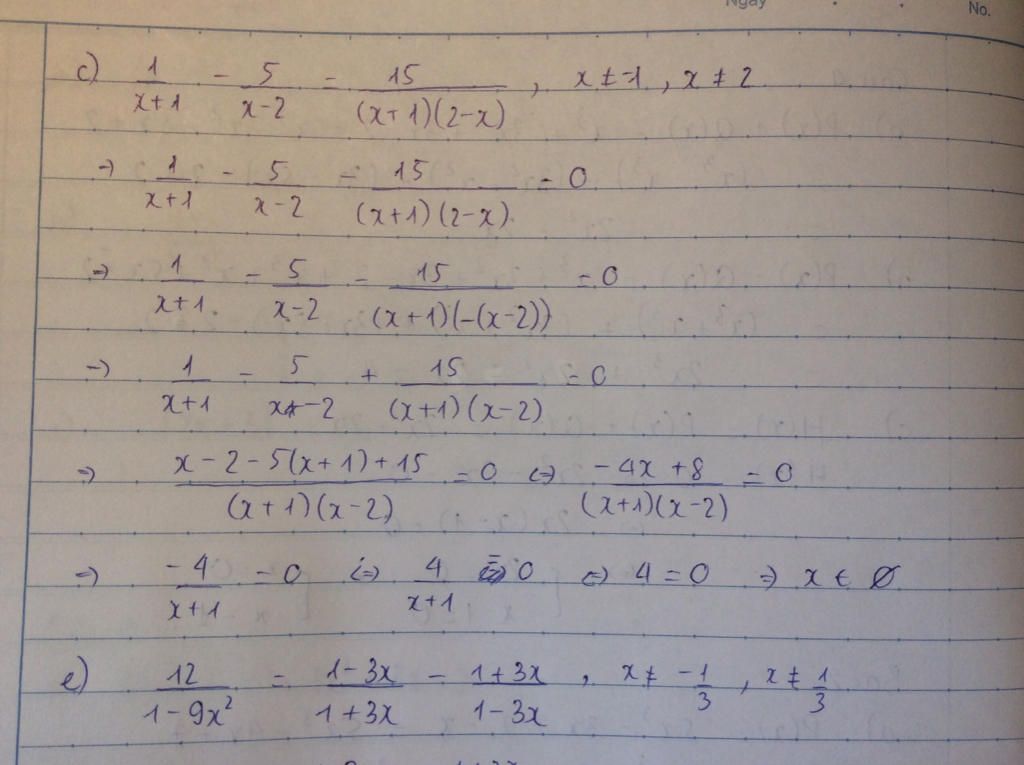 Ngày
No.
c) 1/(x+1) - 5/(x-2) = 15/((x+1)(2-x)), x ≠ -1, x ≠ 2
→ 1/(x+1) - 5/(x-2) - 15/((x+1)(2-x)) = 0
⇒ 1/(x+1) - 5/(x-2) - 15/((x+1)(-(x-2))) = 0
→ 1/(x+1) - 5/(x-2) + 15/((x+1)(x-2)) = 0
⇒ (x-2-5(x+1)+15)/((x+1)(x-2)) = 0 ⇔ (-4x+8)/((x+1)(x-2)) = 0
⇒ -4/(x+1) = 0 ⇔ 4/(x+1) = 0 ⇔ 4 = 0 ⇒ x ∈ ∅
e) 12/(1-9x²) = (1-3x)/(1+3x) - (1+3x)/(1-3x), x ≠ -1/3, x ≠ 1/3